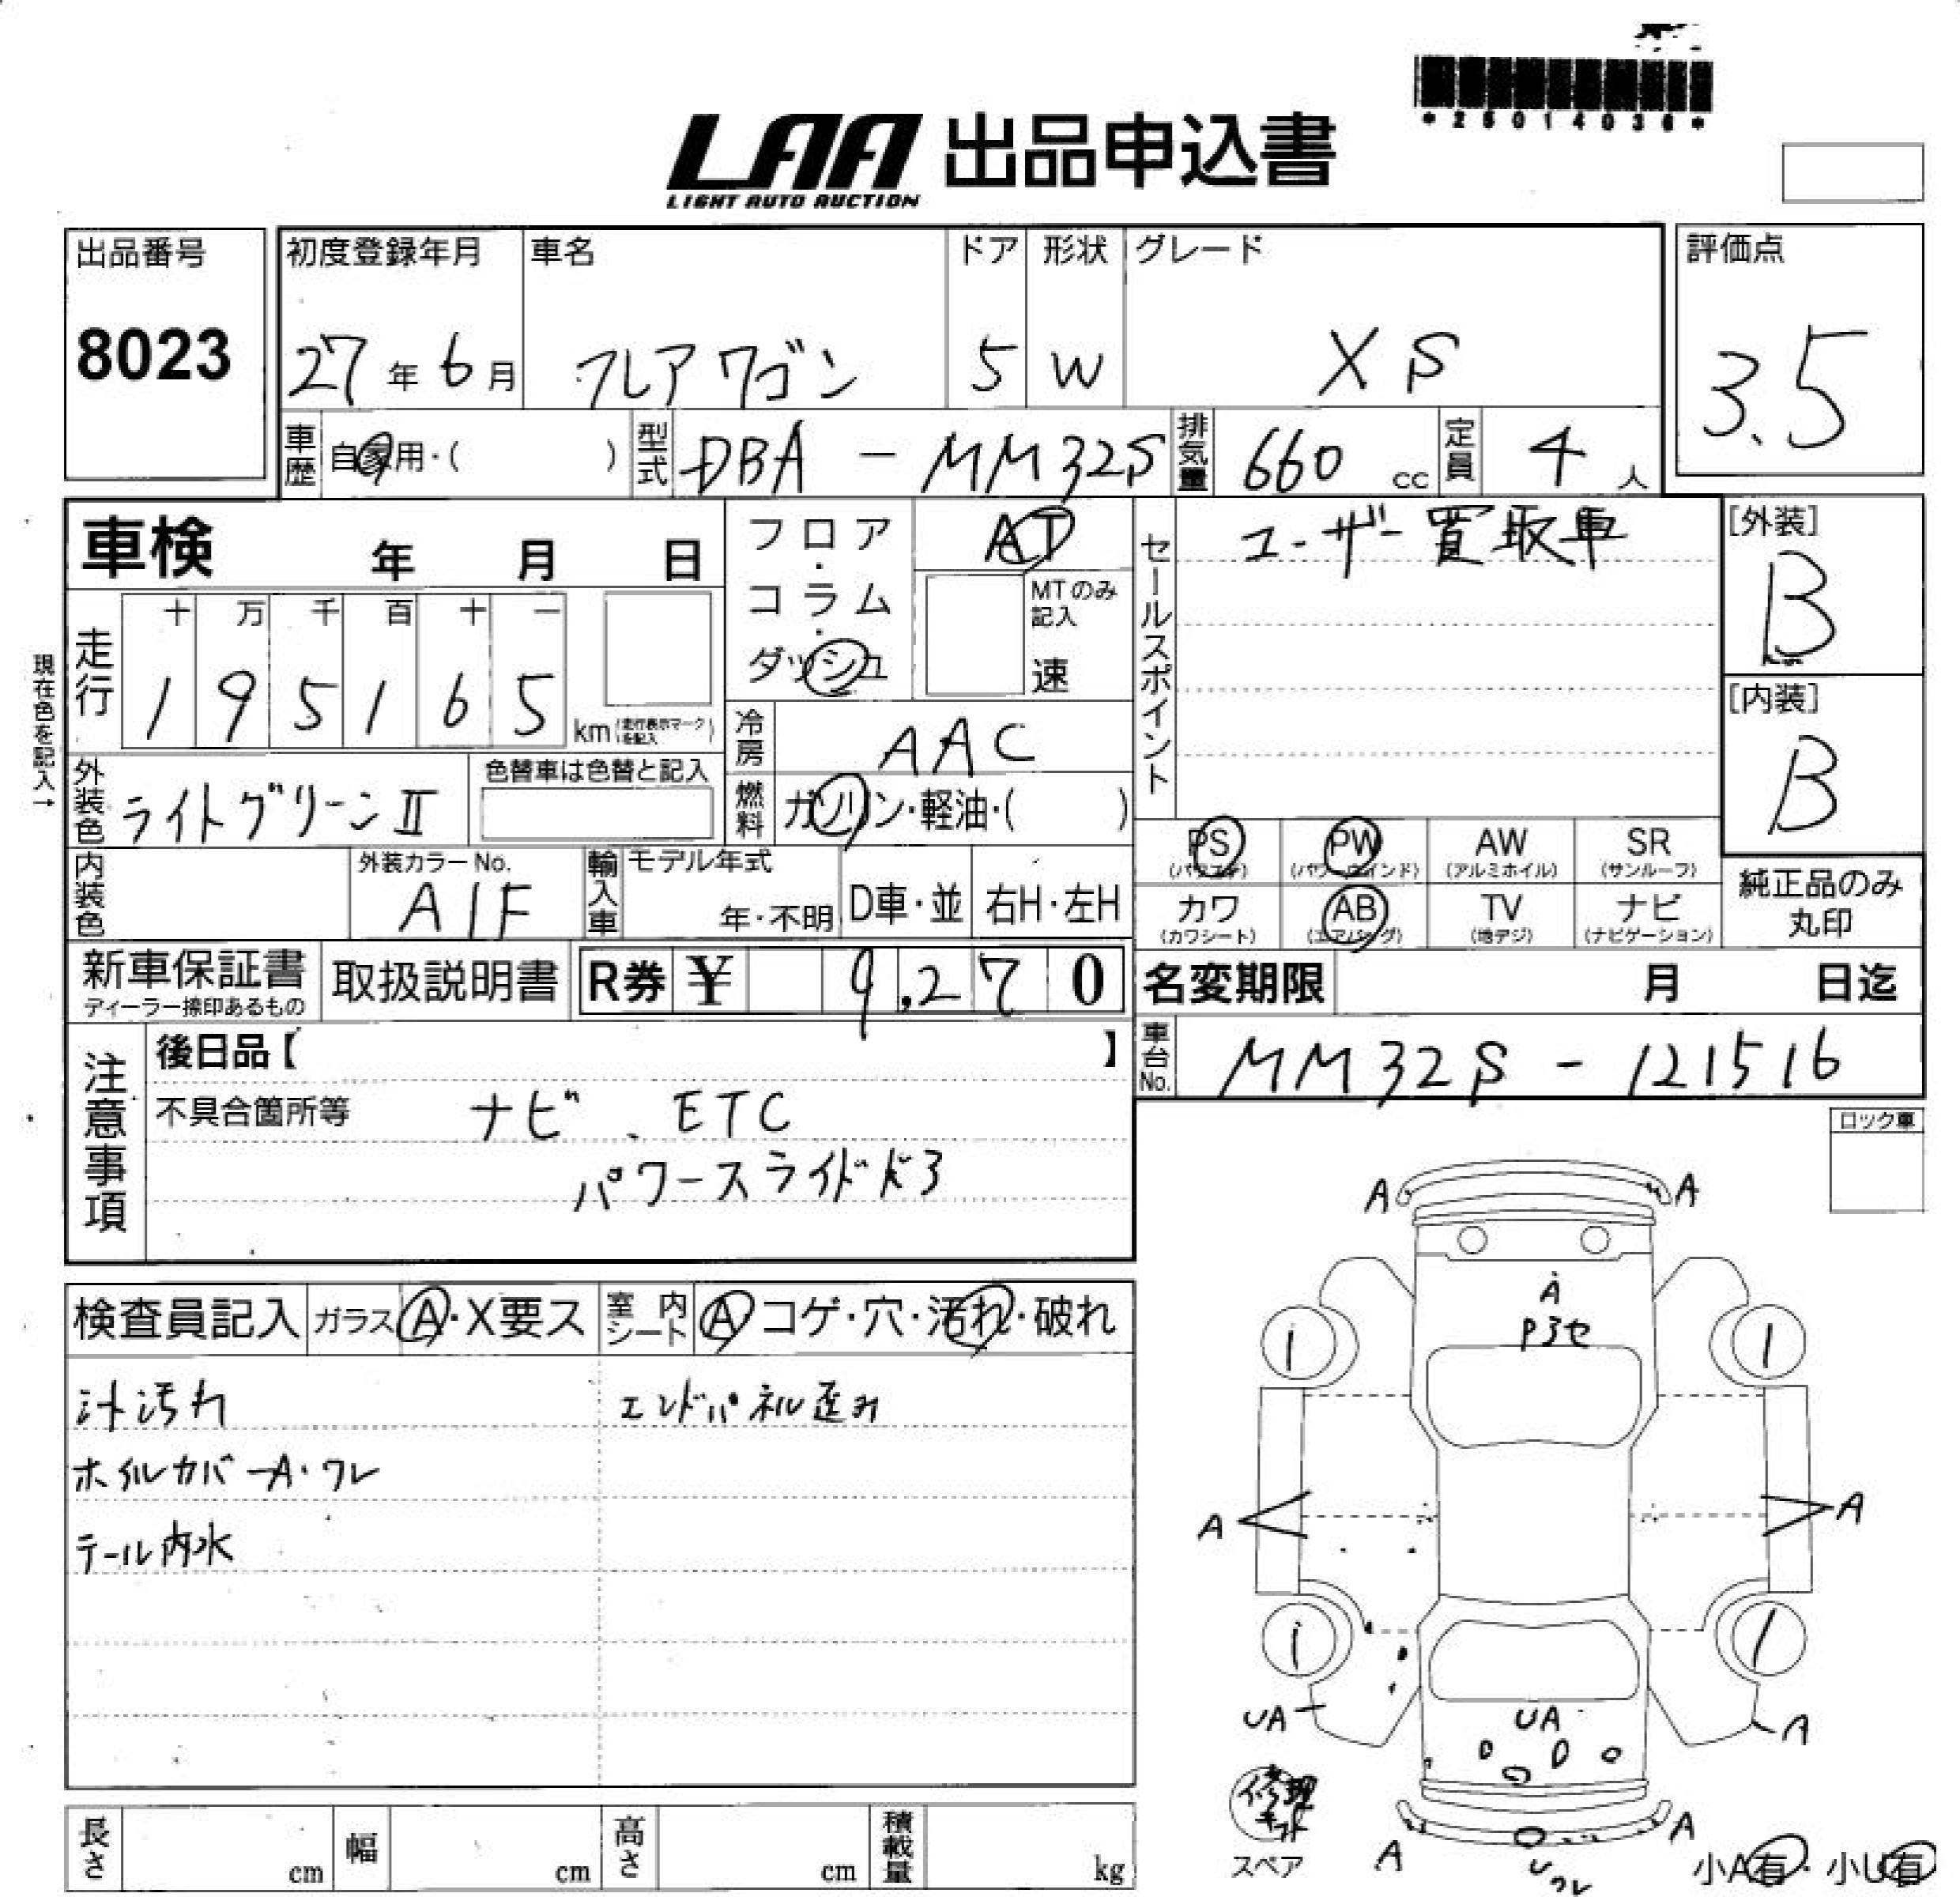 *25014036*
LAA 出品申込書
LIGHT AUTO AUCTION
出品番号
8023
初度登録年月
27年6月
車名
フレアワゴン
ドア
5
形状
W
グレード
XS
評価点
3.5
車歴 自家用・( )
型式 DBA - MM32S
排気量 660 cc
定員 4 人
車検 年 月 日
フロア・コラム・ダッシュ
AT
MTのみ記入
速
セールスポイント
ユーザー買取車
[外装]
B
[内装]
B
現在色を記入→
走行
十 万 千 百 十 一
1 9 5 1 6 5
km (走行表示マークを記入)
冷房 AAC
外装色 ライトグリーンⅡ
色替車は色替と記入
燃料 ガソリン・軽油・( )
内装色
外装カラーNo.
A1F
輸入車
モデル年式
年・不明
D車・並
右H・左H
PS (パワステ)
PW (パワーウインド)
AW (アルミホイル)
SR (サンルーフ)
カワ (カワシート)
AB (エアバッグ)
TV (地デジ)
ナビ (ナビゲーション)
純正品のみ
丸印
新車保証書
ディーラー捺印あるもの
取扱説明書
R券 ¥ 9,270
名変期限 月 日迄
車台No. MM32S - 121516
注意事項
後日品【 】
不具合箇所等 ナビ、ETC
パワースライドドア
ロック車
検査員記入
ガラス A・X要ス
室内シート A コゲ・穴・汚れ・破れ
汁汚れ
エンドパネル歪み
ホイルカバーA・ワレ
テール内水
A A
A
P3セ
A A
UA UA A
A A
Uワレ
修理キット
スペア
小A有・小U有
長さ cm
幅 cm
高さ cm
積載量 kg